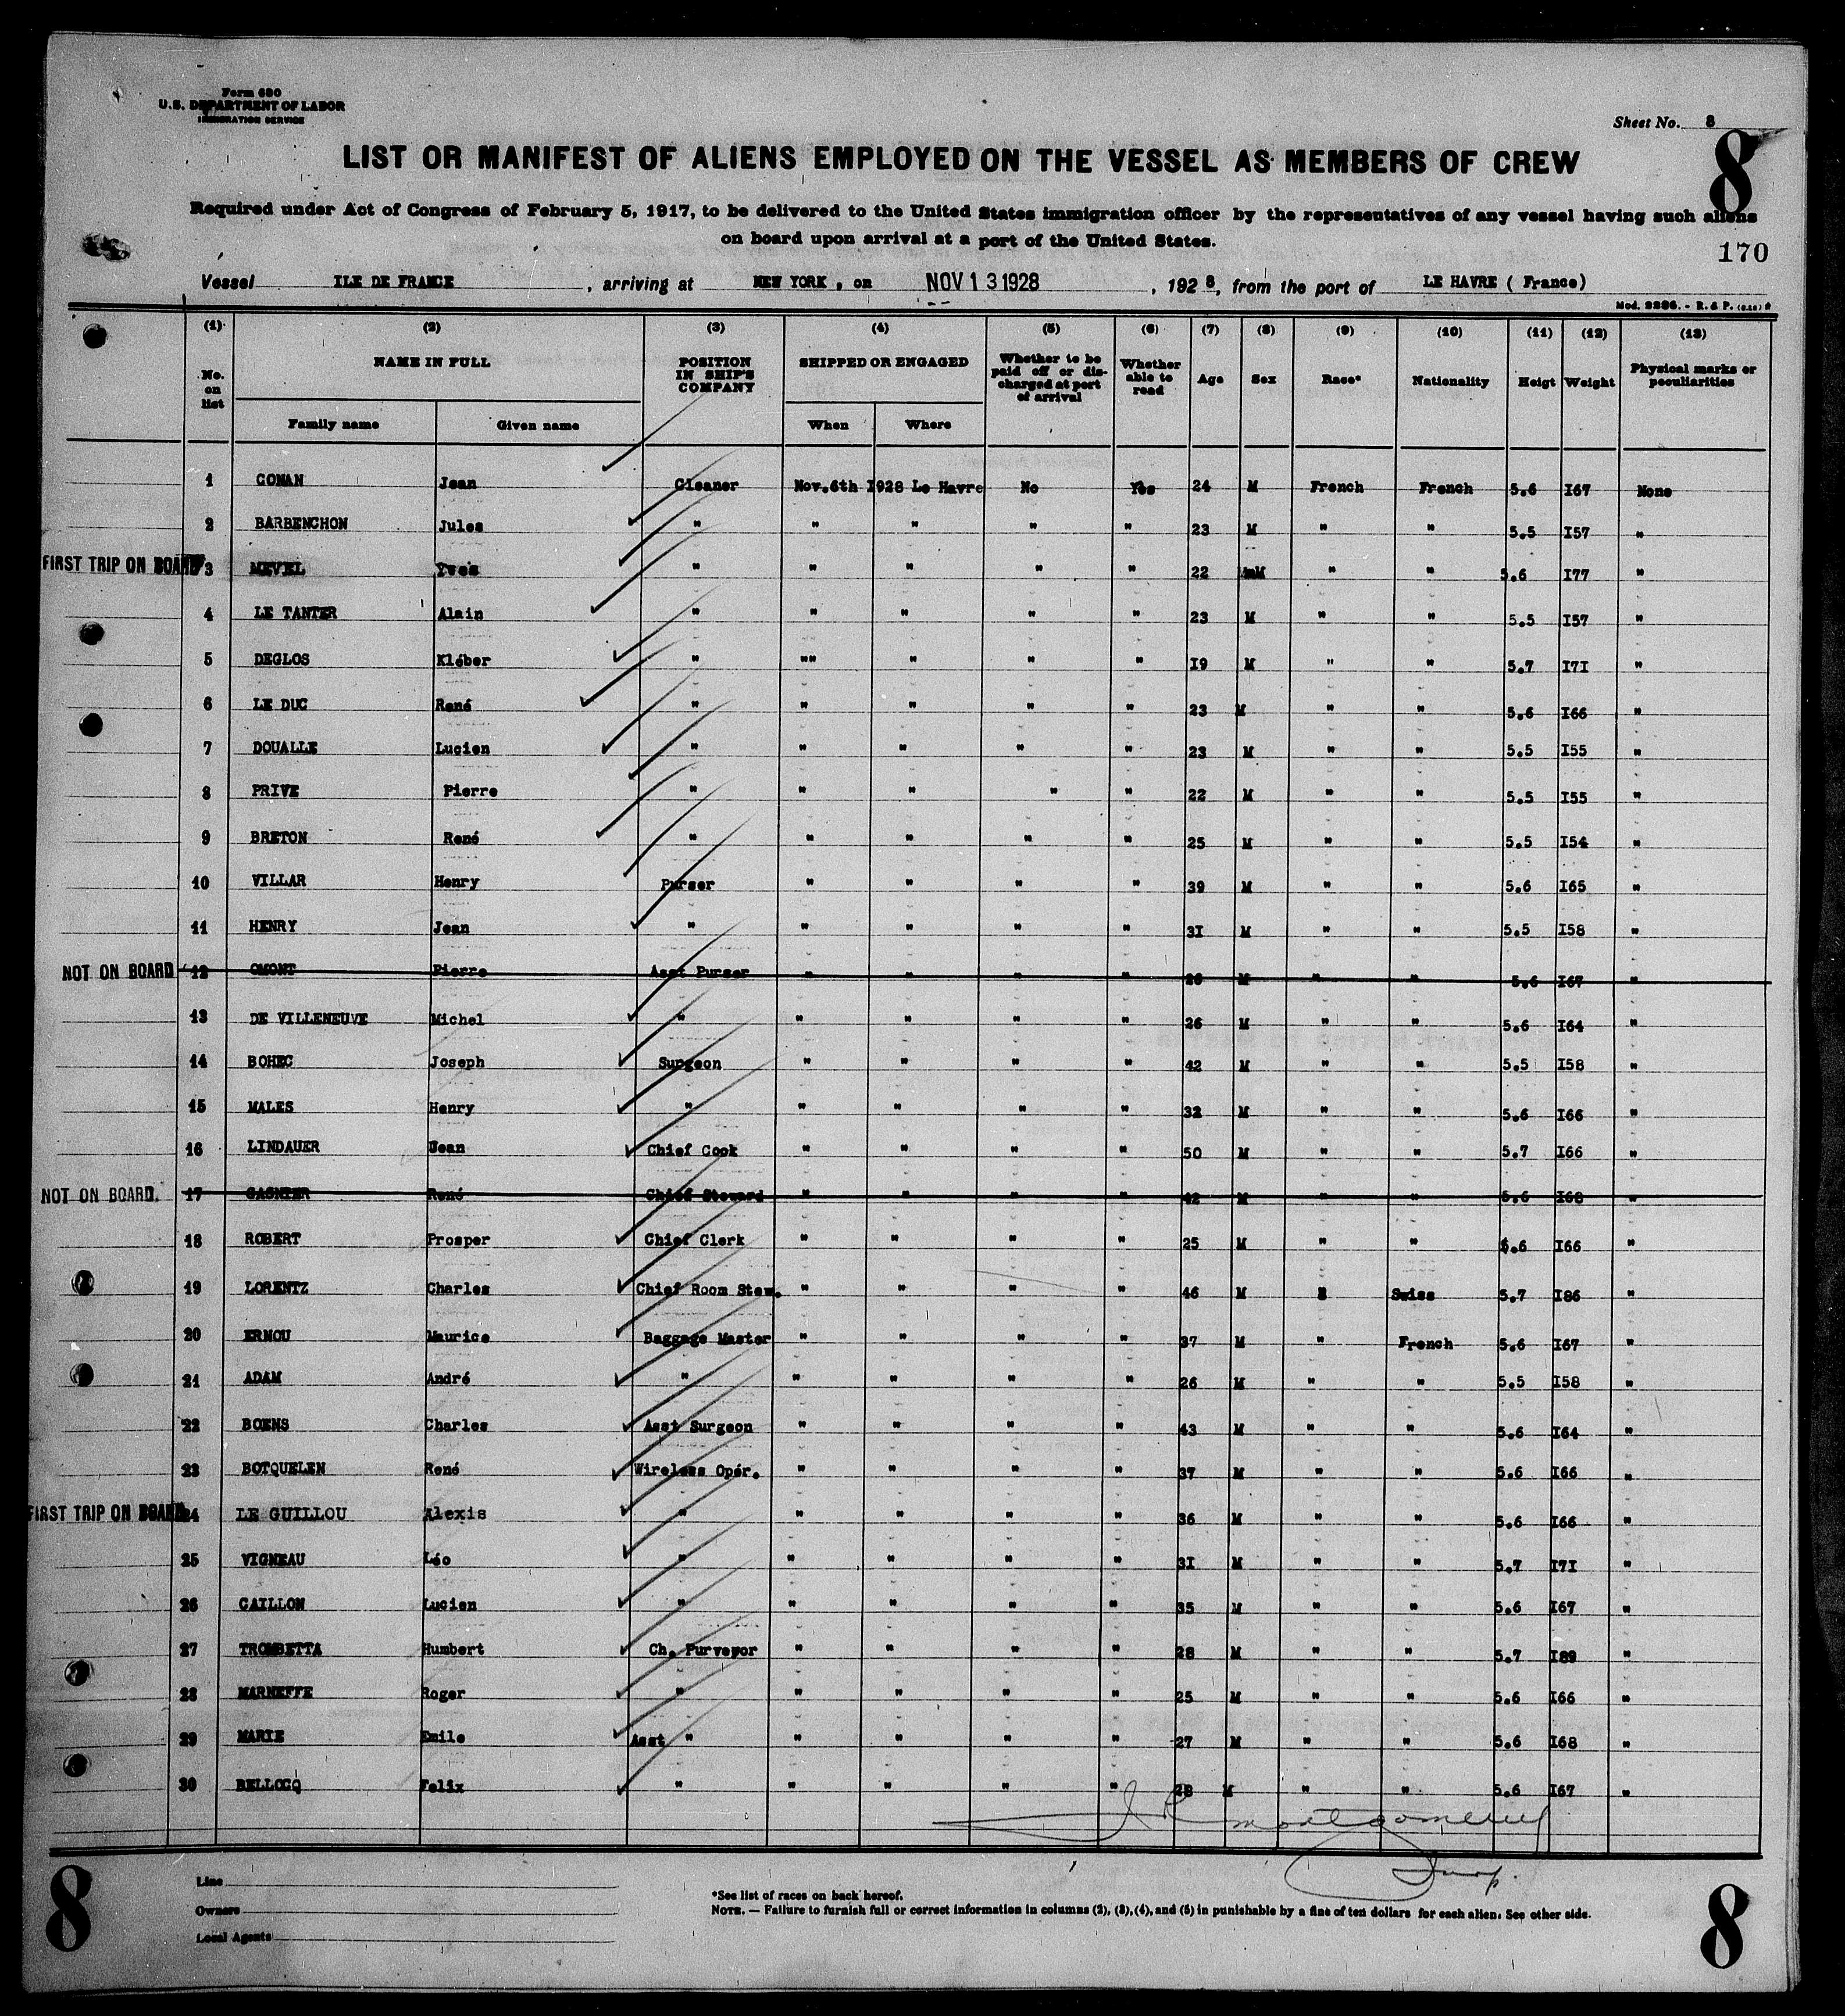 Form 680
U.S. DEPARTMENT OF LABOR
IMMIGRATION SERVICE
Sheet No. 8
8
LIST OR MANIFEST OF ALIENS EMPLOYED ON THE VESSEL AS MEMBERS OF CREW
Required under Act of Congress of February 5, 1917, to be delivered to the United States immigration officer by the representatives of any vessel having such aliens
on board upon arrival at a port of the United States.
170
Vessel ILE DE FRANCE , arriving at NEW YORK , on NOV 13 1928 , 192 8, from the port of LE HAVRE ( France)
Mod. 2286. - R. & P.
(1) (2) (3) (4) (5) (6) (7) (8) (9) (10) (11) (12) (13)
No. on list NAME IN FULL POSITION IN SHIP'S COMPANY SHIPPED OR ENGAGED Whether to be paid off or discharged at port of arrival Whether able to read Age Sex Race* Nationality Heigt Weight Physical marks or peculiarities
Family name Given name When Where
1 CONAN Jean Cleaner Nov.6th 1928 Le Havre No Yes 24 M French French 5.6 I67 None
2 BARBENCHON Jules " " " " " 23 M " " 5.5 I57 "
FIRST TRIP ON BOARD 3 MEVEL Yves " " " " " 22 M " " 5.6 I77 "
4 LE TANTER Alain " " " " " 23 M " " 5.5 I57 "
5 DEGLOS Kléber " "" " " " I9 M " " 5.7 I7I "
6 LE DUC René " " " " " 23 M " " 5.6 I66 "
7 DOUALLE Lucien " " " " " 23 M " " 5.5 I55 "
8 PRIVE Pierre " " " " " 22 M " " 5.5 I55 "
9 BRETON René " " " " " 25 M " " 5.5 I54 "
10 VILLAR Henry Purser " " " " 39 M " " 5.6 I65 "
11 HENRY Jean " " " " " 3I M " " 5.5 I58 "
NOT ON BOARD 12 OMONT Pierre Asst Purser " " " " M " " 5.6 I67 "
13 DE VILLENEUVE Michel " " " " " 26 M " " 5.6 I64 "
14 BOHEC Joseph Surgeon " " " " 42 M " " 5.5 I58 "
15 MALES Henry " " " " " 32 M " " 5.6 I66 "
16 LINDAUER Jean Chief Cook " " " " 50 M " " 5.7 I66 "
NOT ON BOARD. 17 GASNIER René Chief Steward " " " " 42 M " " 5.6 I68 "
18 ROBERT Prosper Chief Clerk " " " " 25 M " " 5.6 I66 "
19 LORENTZ Charles Chief Room Stew. " " " " 46 M " Swiss 5.7 I86 "
20 ERNOU Maurice Baggage Master " " " " 37 M " French 5.6 I67 "
21 ADAM André " " " " " 26 M " " 5.5 I58 "
22 BOENS Charles Asst Surgeon " " " " 43 M " " 5.6 I64 "
23 BOTQUELEN René Wireless Opér. " " " " 37 M " " 5.6 I66 "
FIRST TRIP ON BOARD 24 LE GUILLOU Alexis " " " " " 36 M " " 5.6 I66 "
25 VIGNEAU Léo " " " " " 3I M " " 5.7 I7I "
26 CAILLON Lucien " " " " " 35 M " " 5.6 I67 "
27 TROMBETTA Humbert Ch. Purveyor " " " " 28 M " " 5.7 I89 "
28 MARNEFFE Roger " " " " " 25 M " " 5.6 I66 "
29 MARIE Emile Asst " " " " " 27 M " " 5.6 I68 "
30 BELLOCQ Felix " " " " " 28 M " " 5.6 I67 "
Montgomery
Insp.
8
Line
Owners
Local Agents
*See list of races on back hereof.
NOTE. — Failure to furnish full or correct information in columns (2), (3), (4), and (5) in punishable by a fine of ten dollars for each alien. See other side.
8